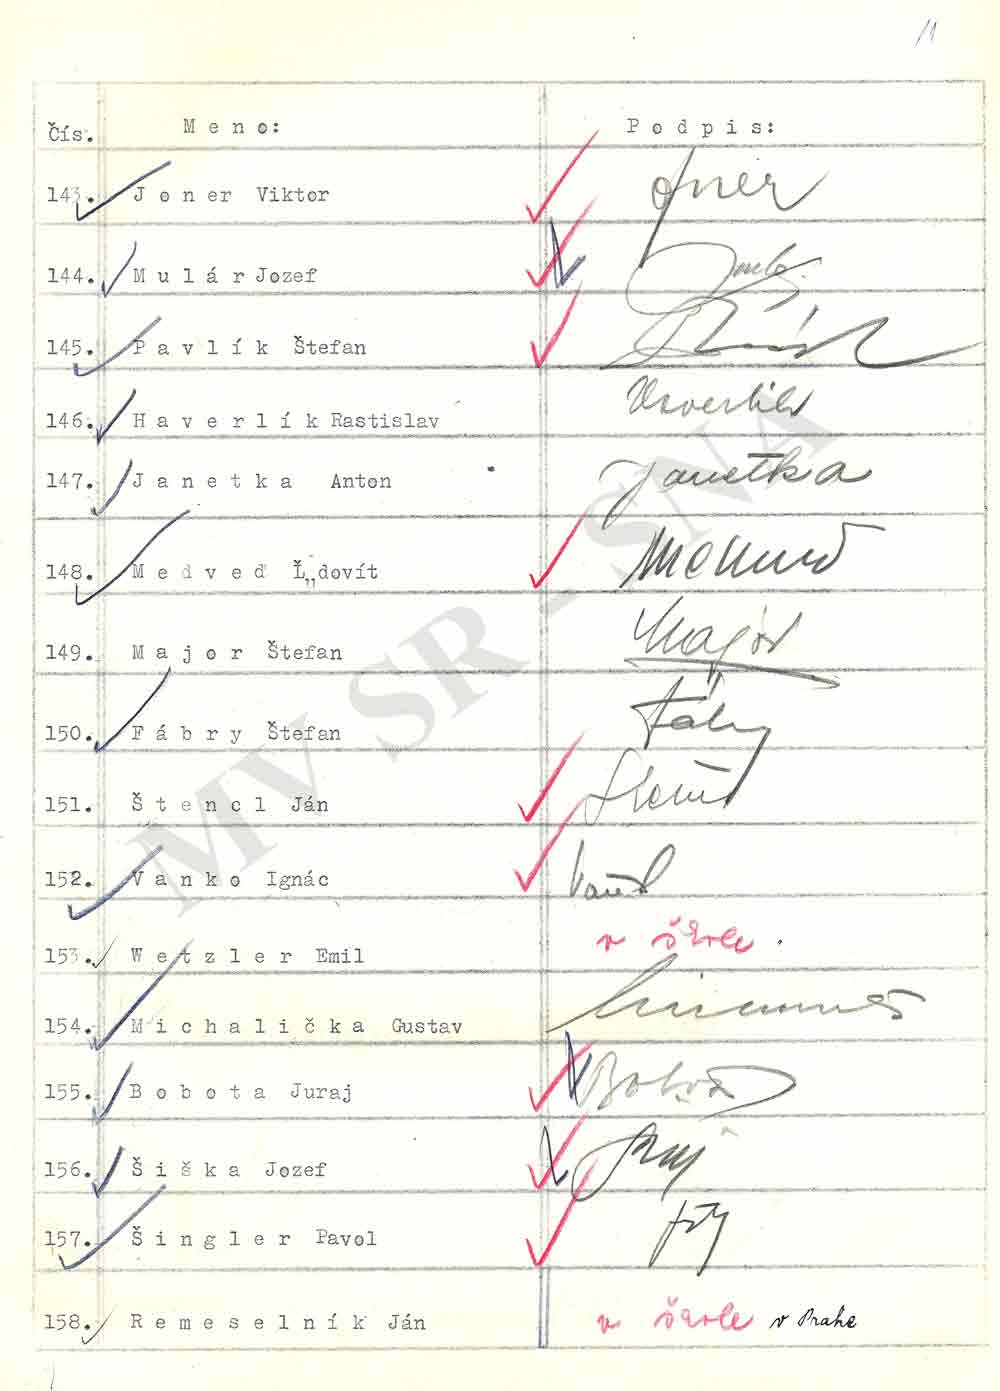 11
Čís. Meno: Podpis:
143. Joner Viktor Joner
144. Mulár Jozef
145. Pavlík Štefan
146. Haverlík Rastislav Haverlík
147. Janetka Anton Janetka
148. Medveď Ľ„dovít
149. Major Štefan Major
150. Fábry Štefan Fábry
151. Štencl Ján
152. Vanko Ignác
153. Wetzler Emil v škole.
154. Michalička Gustav
155. Bobota Juraj Bobota
156. Šiška Jozef
157. Šingler Pavol
158. Remeselník Ján v škole v Prahe
MV SR - SNA